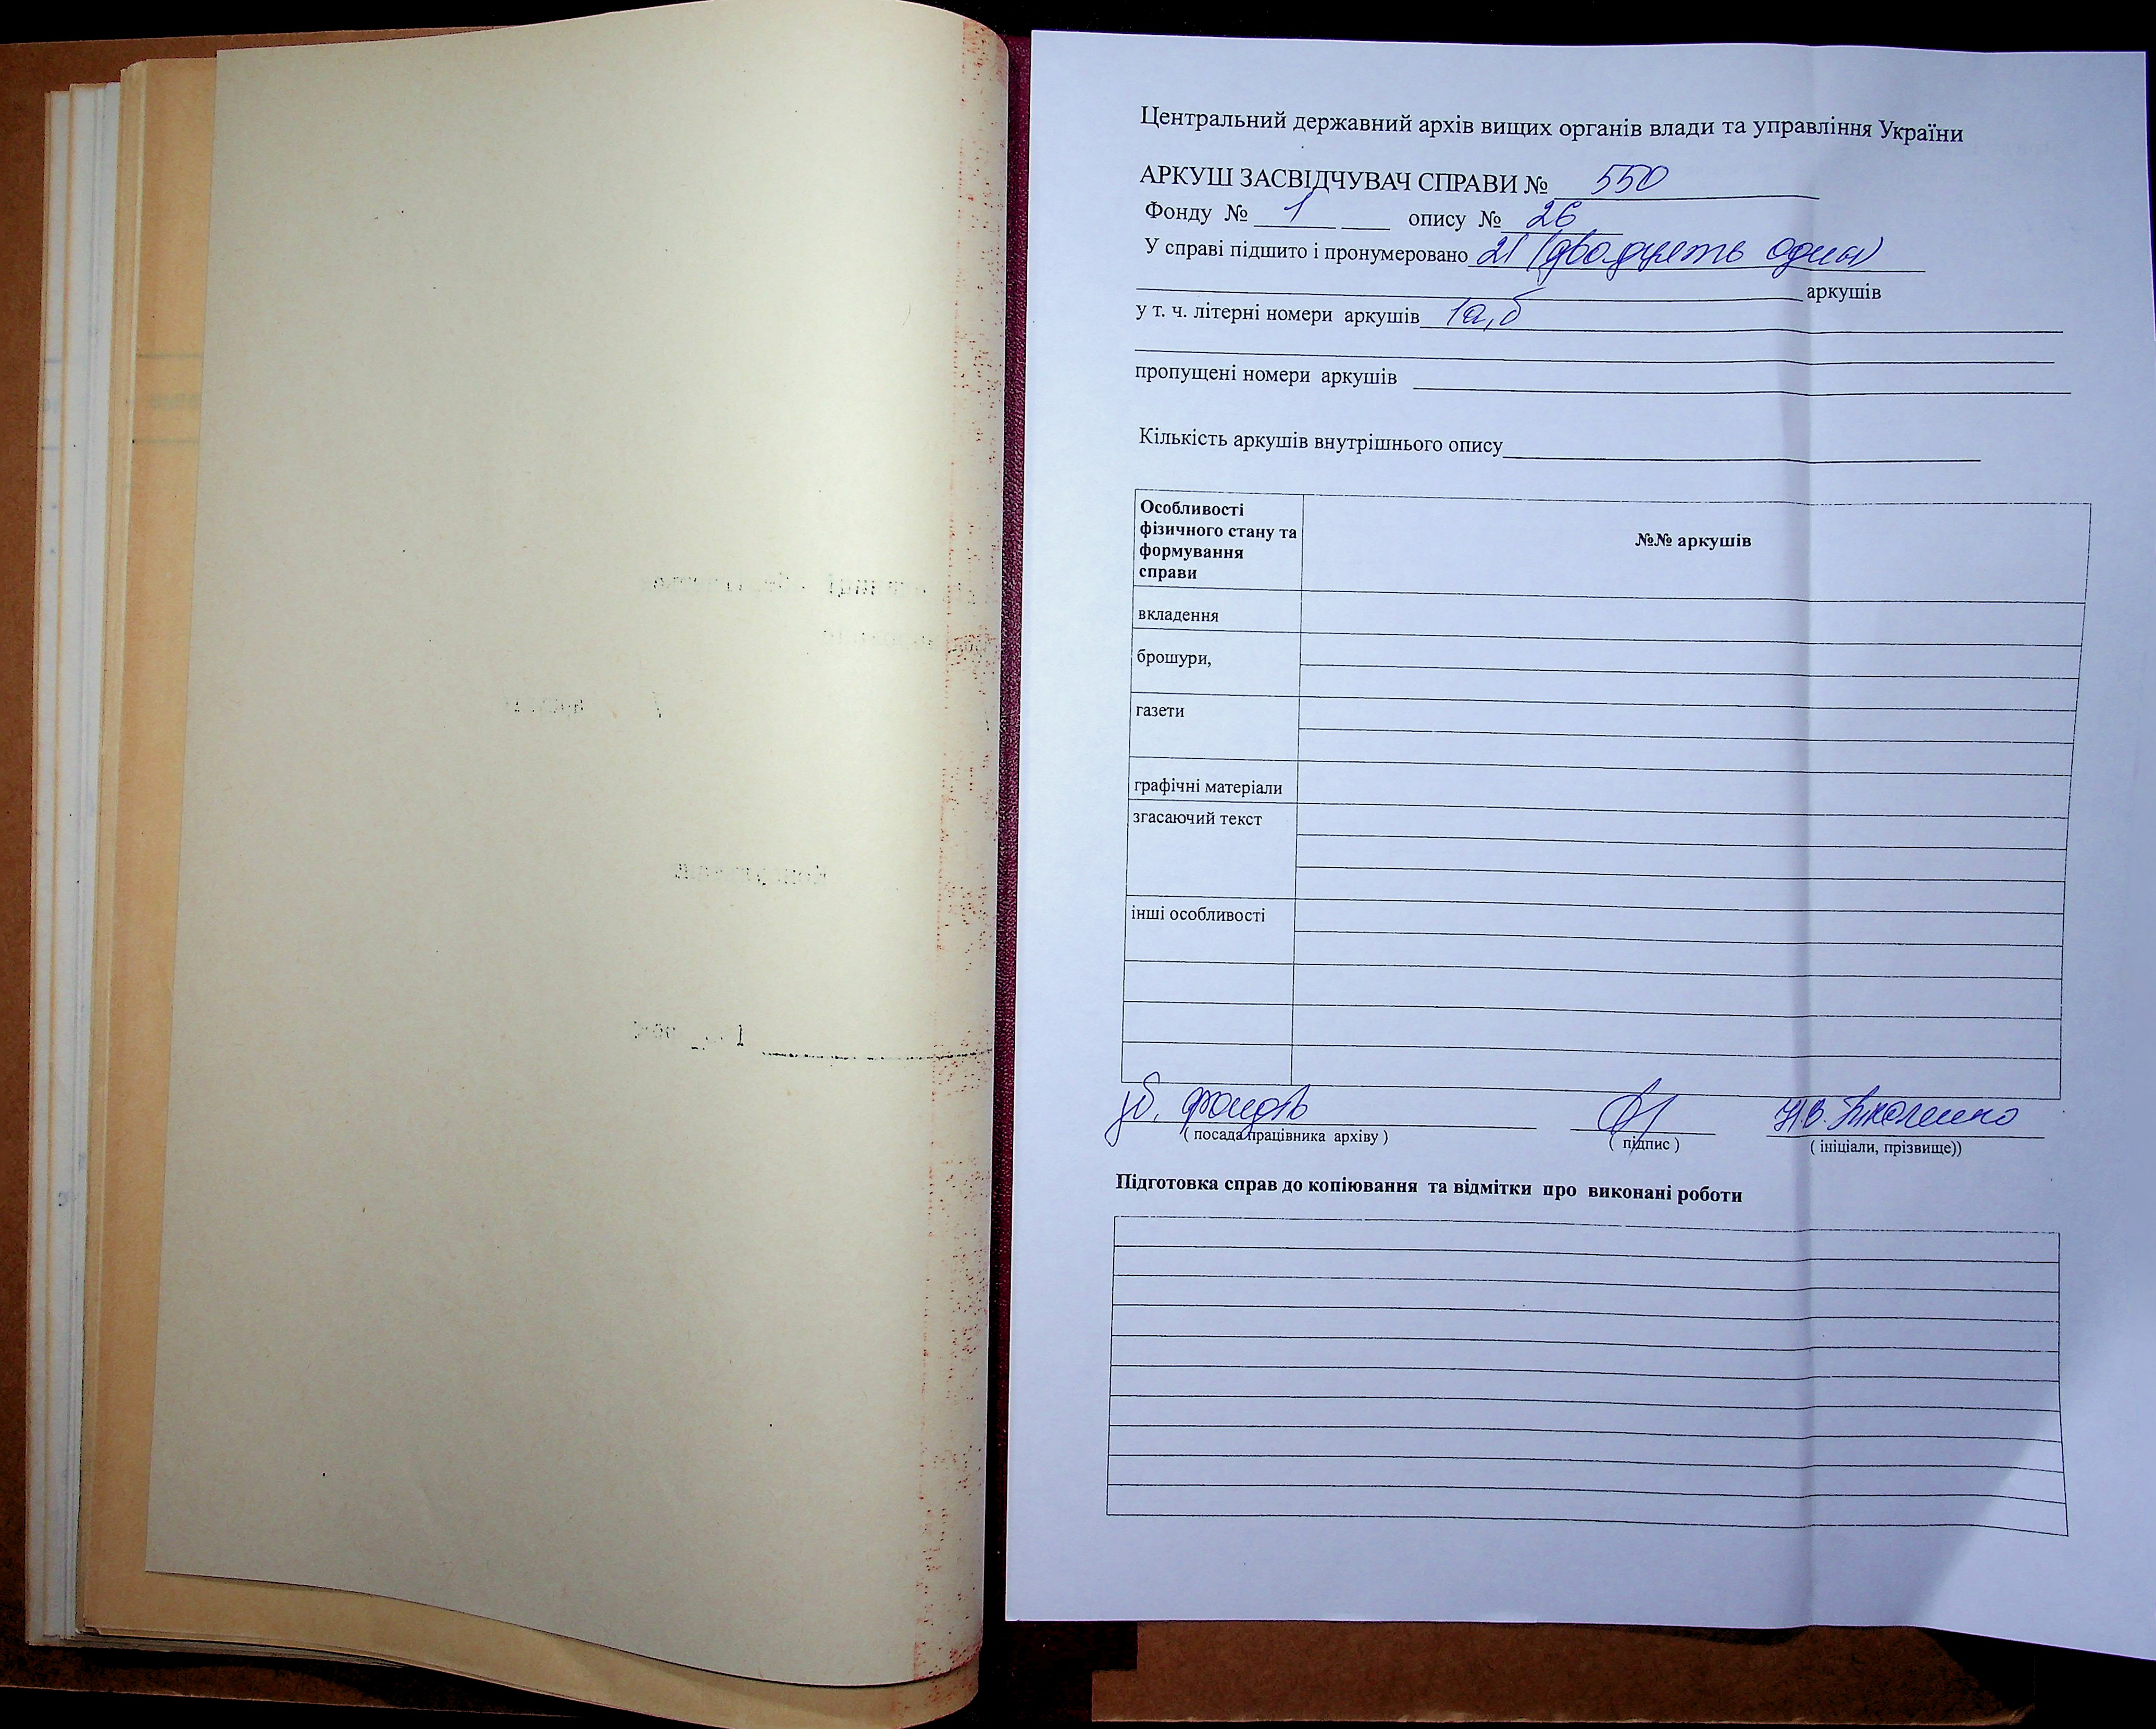 Центральний державний архів вищих органів влади та управління України
АРКУШ ЗАСВІДЧУВАЧ СПРАВИ № 550
Фонду № 1 опису № 26
У справі підшито і пронумеровано 21 (двадцять один)
аркушів
у т. ч. літерні номери аркушів 1а,б
пропущені номери аркушів
Кількість аркушів внутрішнього опису
Особливості фізичного стану та формування справи
№№ аркушів
вкладення
брошури,
газети
графічні матеріали
згасаючий текст
інші особливості
зб. фондів
Н.В.
( посада працівника архіву ) ( підпис ) ( ініціали, прізвище))
Підготовка справ до копіювання та відмітки про виконані роботи